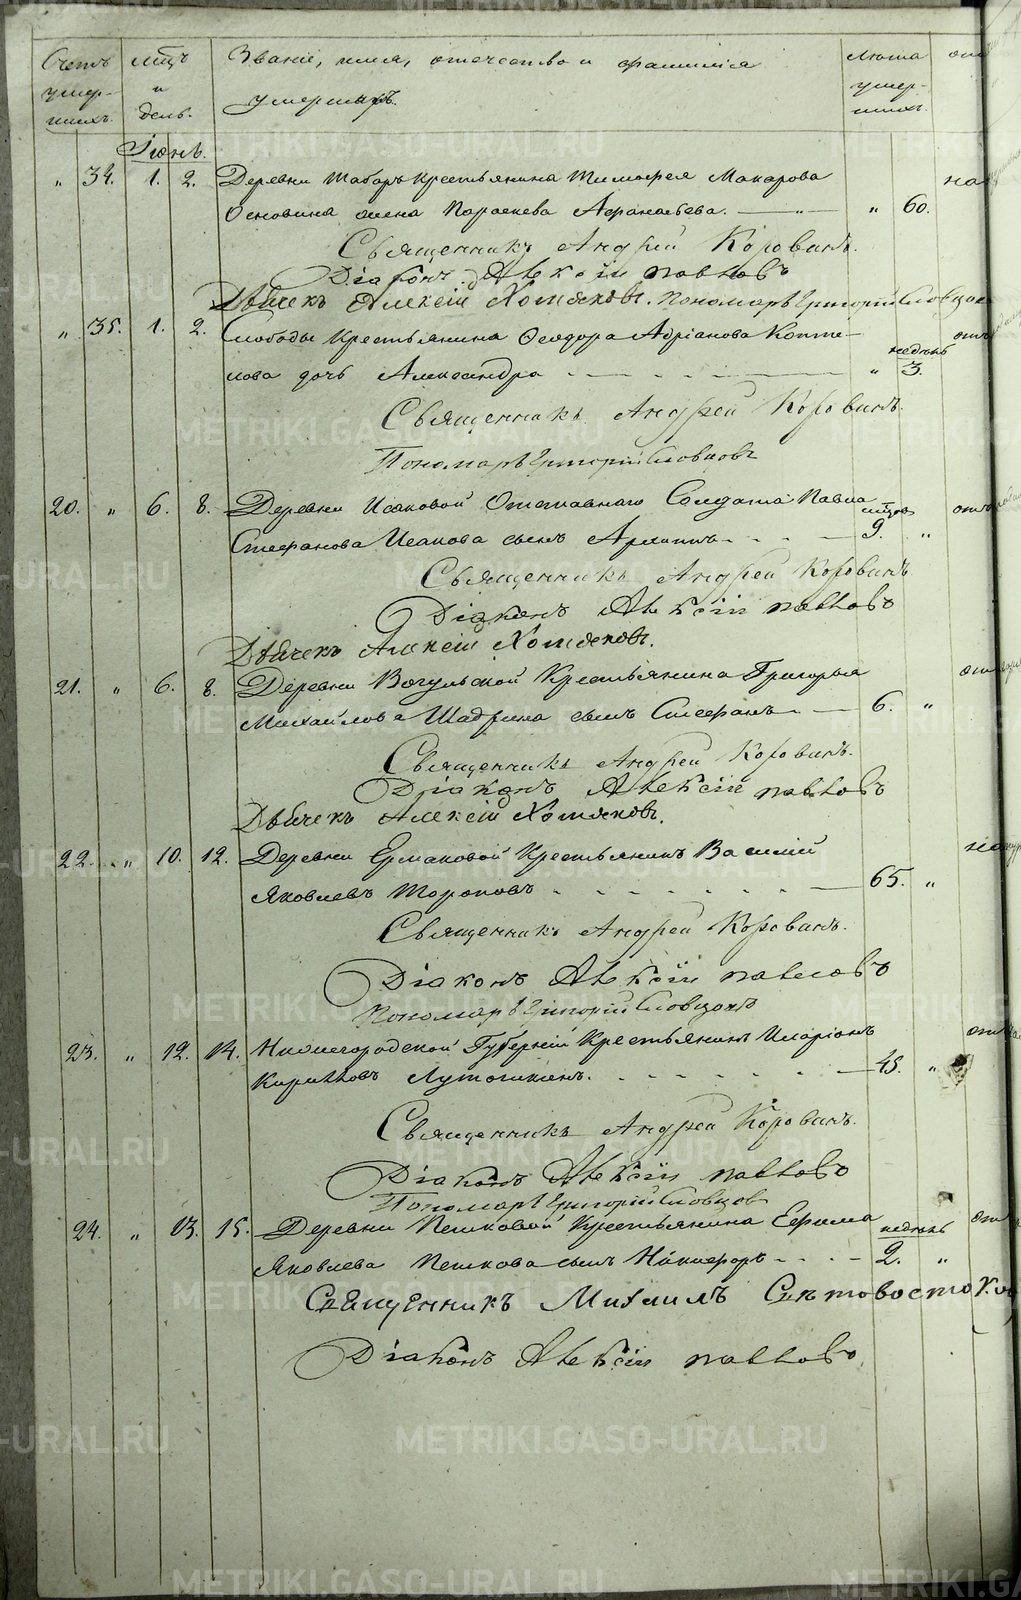 Счетъ умер-шихъ.
Мѣсяцъ и день.
Званіе, имя, отечество и фамилія умершихъ.
Лѣта умер-шихъ.
Іюнь.
" 34. 1. 2. Деревни Табаръ Крестьянина Тимофея Макарова
Основина жена Параскева Афанасьева. — " — " 60.
Священникъ Андрей Коровинъ.
Діаконъ Алексій Павловъ
Дьячекъ Алексій Хомяковъ. Пономарь Григорій Словцовъ
" 35. 1. 2. Слободы Крестьянина Феодора Адріанова Копте-
недѣль
лова дочь Александра — " 3.
Священникъ Андрей Коровинъ.
Пономарь Григорій Словцовъ
20. " 6. 8. Деревни Исаковой Отставного Солдата Павла
мѣсяцовъ
Стефанова Исакова сынъ Архипъ — 9. "
Священникъ Андрей Коровинъ
Діаконъ Алексій Павловъ
Дьячекъ Алексій Хомяковъ.
21. " 6. 8. Деревни Вогульской Крестьянина Григорья
Михайлова Шадрина сынъ Стефанъ — 6. "
Священникъ Андрей Коровинъ.
Діаконъ Алексій Павловъ
Дьячекъ Алексій Хомяковъ.
22. " 10. 12. Деревни Ермаковой Крестьянинъ Василій
Яковлевъ Тороповъ — 65. "
Священникъ Андрей Коровинъ.
Діаконъ Алексій Павловъ
Пономарь Григорій Словцовъ
23. " 12. 14. Нижегородской Губерніи Крестьянинъ Иларіонъ
Кирилловъ Лутошкинъ. — 45. "
Священникъ Андрей Коровинъ.
Діаконъ Алексій Павловъ
Пономарь Григорій Словцовъ
24. " 13. 15. Деревни Пешковой Крестьянина Ефима
недѣль
Яковлева Пешкова сынъ Никифоръ — 2. "
Священникъ Михаилъ Свѣтовостоков
Діаконъ Алексій Павловъ
METRIKI.GASO-URAL.RU